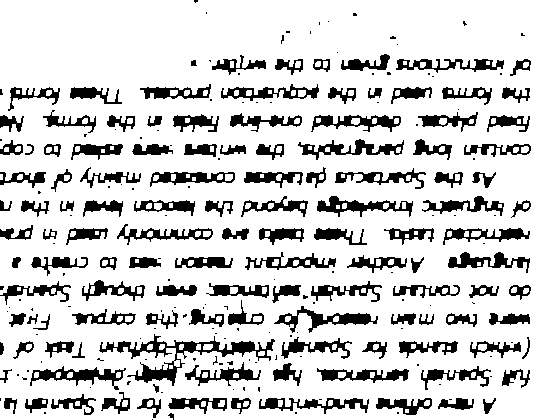 A new offline handwritten database for the Spanish la
full Spanish sentences, has recently been developed: t
(which stands for Spanish Restricted-domain Task of
were two main reasons for creating this corpus. First
do not contain Spanish sentences, even though Spanish
language. Another important reason was to create a
restricted tasks. These tasks are commonly used in prac
of linguistic knowledge beyond the lexicon level in the re
As the Spartacus database consisted mainly of short
contain long paragraphs, the writers were asked to copy
fixed places: dedicated one-line fields in the forms. Ne
the forms used in the acquisition process. These forms
of instructions given to the writer.